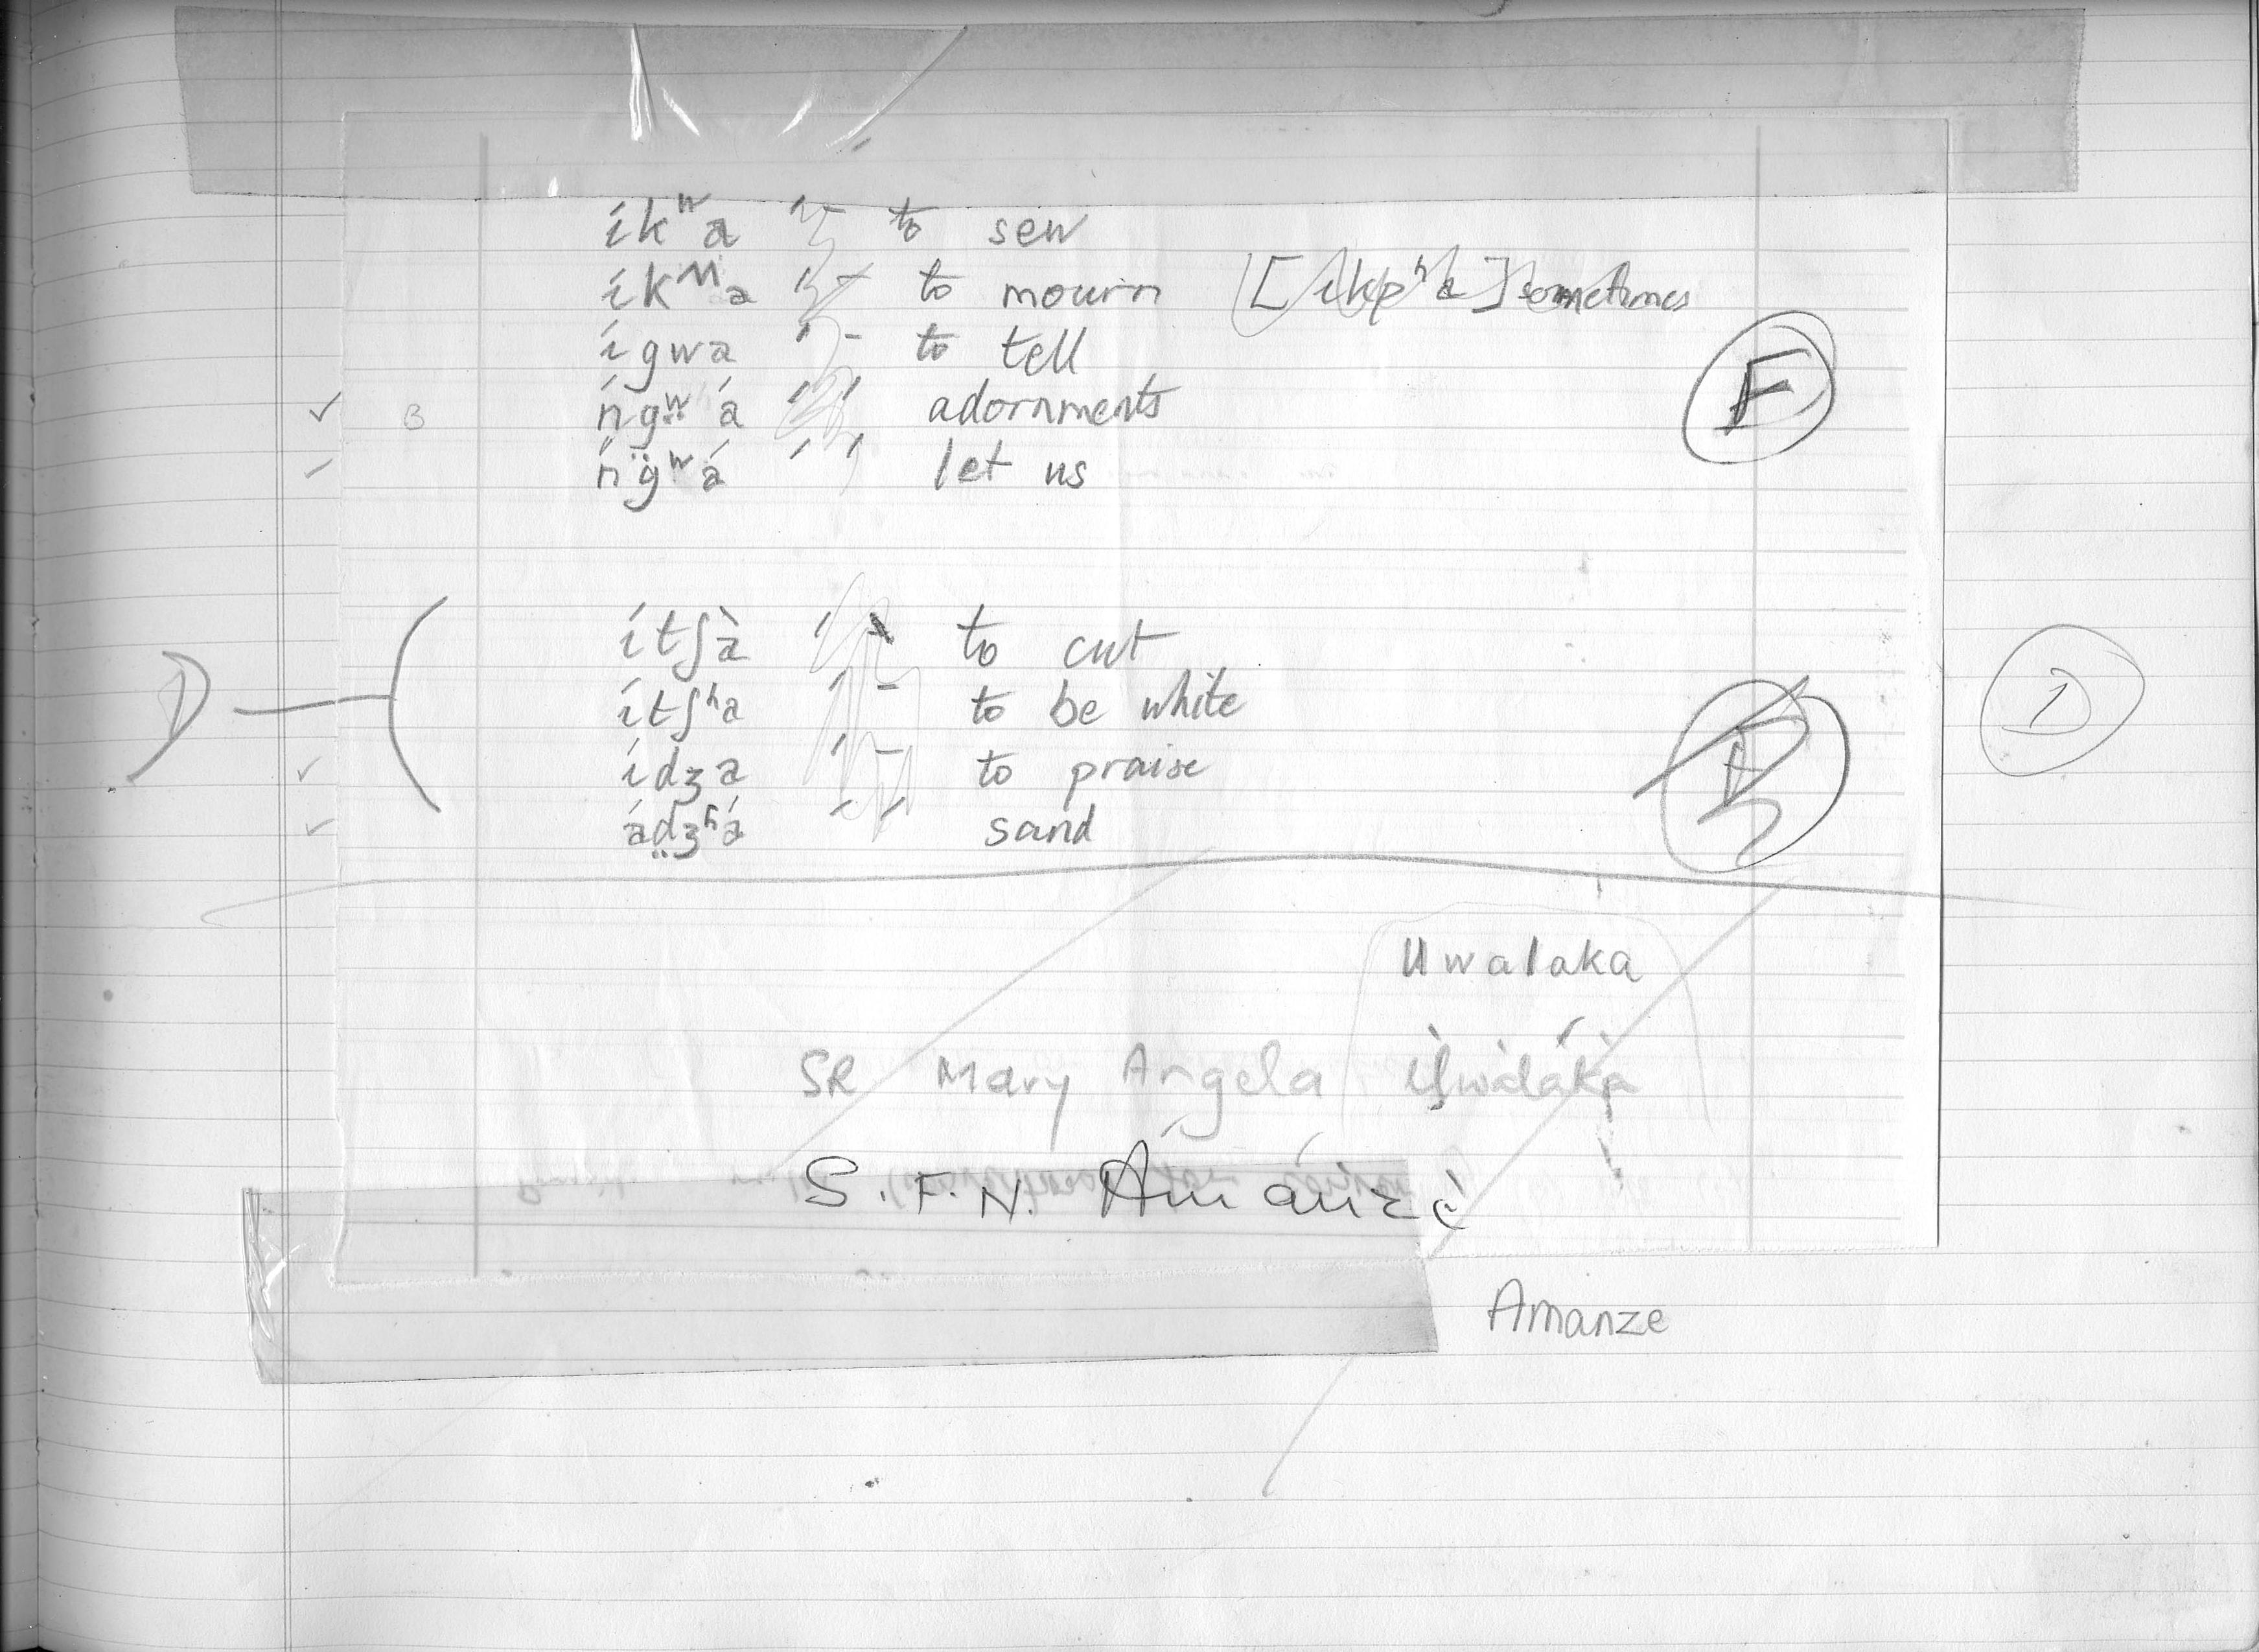 íkʷa ' - to sew
íkʍa ' - to mourn [ikpʰa] sometimes
ígwa ' - to tell F
✓ B ńgʷ̤á ' ' adornments
ńg̈ʷá ' ' let us
ítʃà ' ` to cut
ítʃʰa ' - to be white
D ✓ ídʒa ' - to praise D
✓ ád̤ʒʱá ' ' sand
Uwalaka
SR Mary Angela
S.F.N. Ámánzè
Amanze